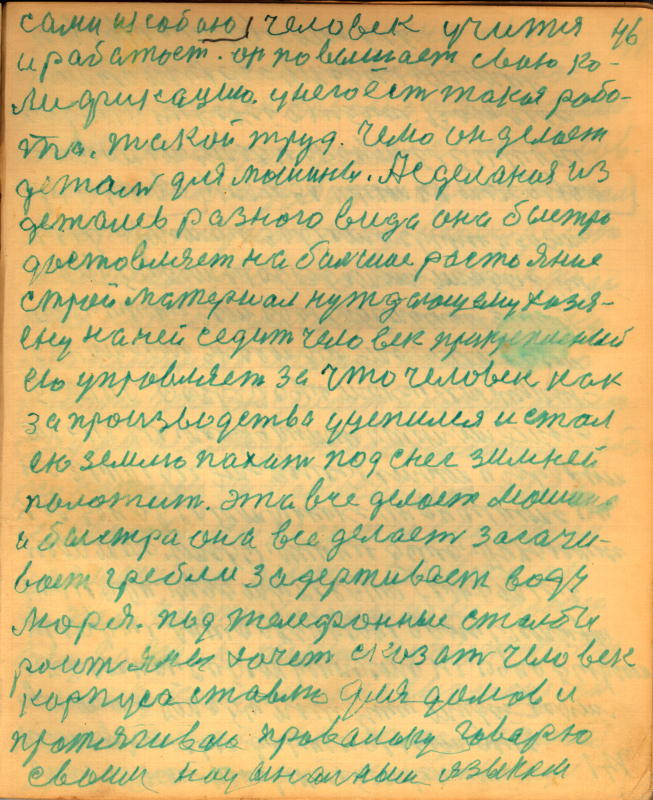 сами из собою, человек учится 46
и работает. он повышает свою ко-
лификацию. у него ест такая рабо-
та, такой труд. чемо он делает
детали для машины. А сделаная из
деталев разного вида она быстро
доставляет на большое растояние
строй материал нуждающему хозя-
ену на ней седит человек прикрепленый
ею управляет за что человек как
за производства уцепился и стал
ею землю пахат под снег зимней
положит. эта вче делает машина
и быстра она все делает засачи-
вает гребли задерживает воду
моря. под телефонные сталбы
роит ямы хочет сказат человек
корпуса ставлю для домов и
протягиваю провалоку говарю
своим национальным языком